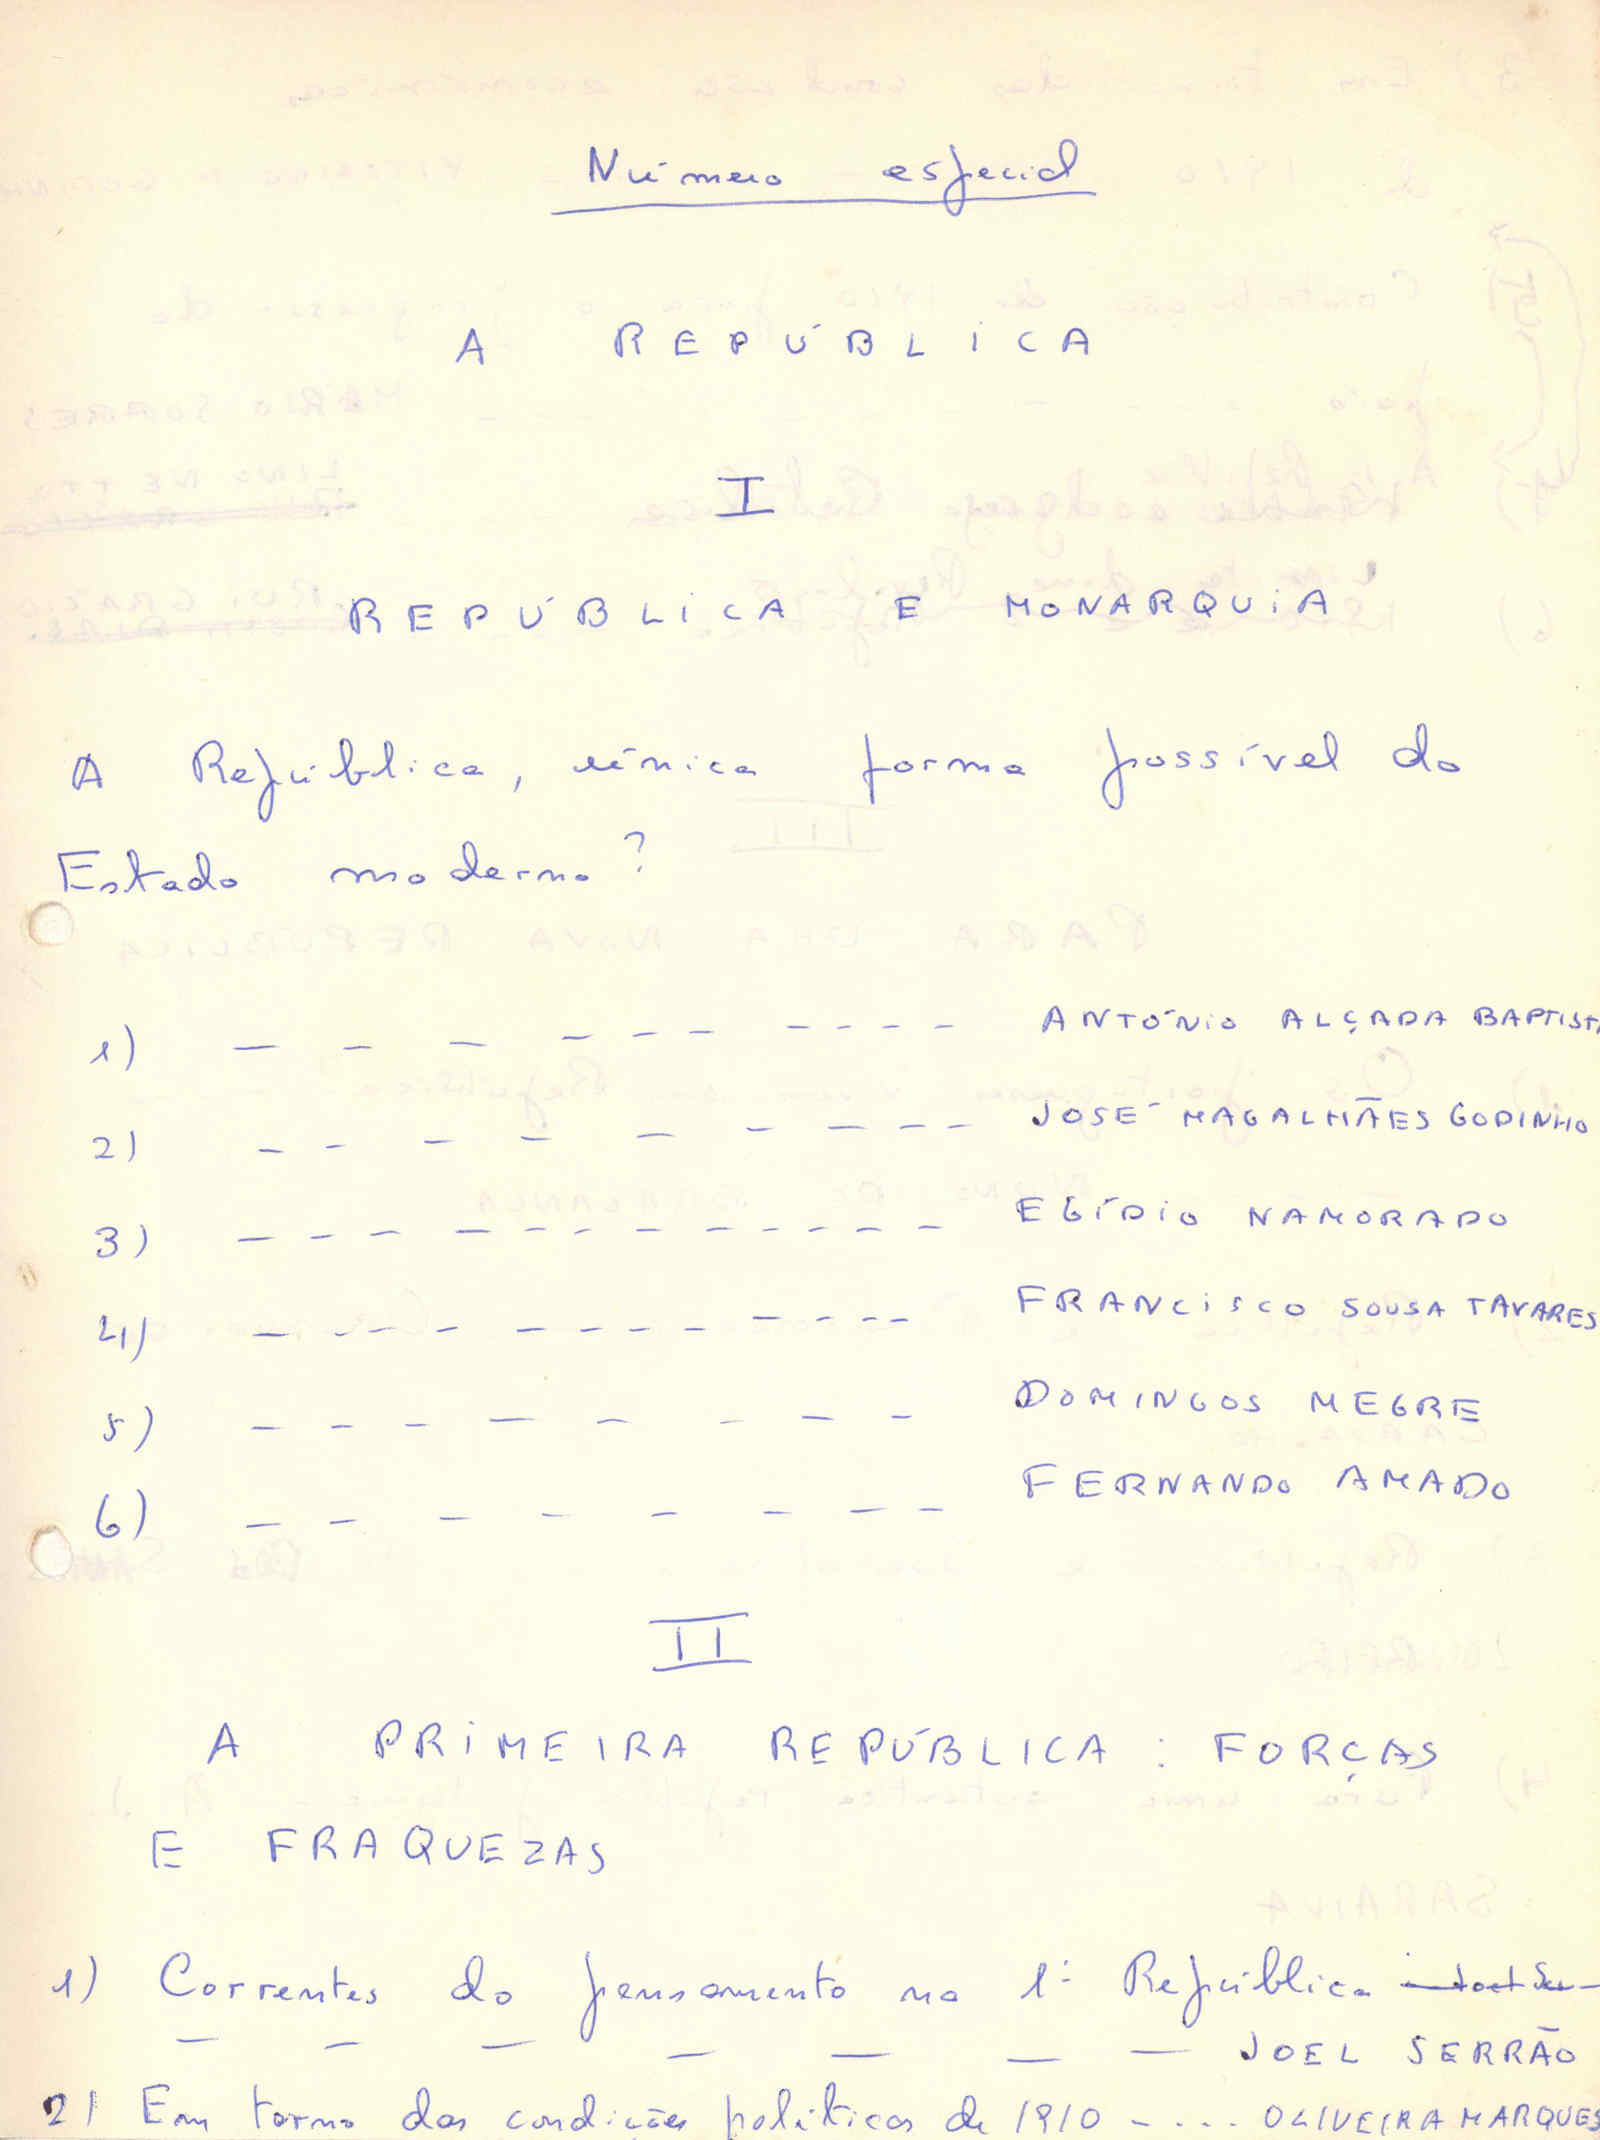 Número especial
A REPÚBLICA
I
REPÚBLICA E MONARQUIA
A República, única forma possível do
Estado moderno?
1) — — — — — — — — — — ANTÓNIO ALÇADA BAPTISTA
2) — — — — — — — — — JOSÉ MAGALHÃES GODINHO
3) — — — — — — — — — — — EGÍDIO NAMORADO
4) — — — — — — — — — — — FRANCISCO SOUSA TAVARES
5) — — — — — — — — DOMINGOS MEGRE
6) — — — — — — — — FERNANDO AMADO
II
A PRIMEIRA REPÚBLICA : FORÇAS
E FRAQUEZAS
1) Correntes do pensamento na 1ª República
— — — — — — — JOEL SERRÃO
2) Em torno das condições políticas de 1910 - .... OLIVEIRA MARQUES